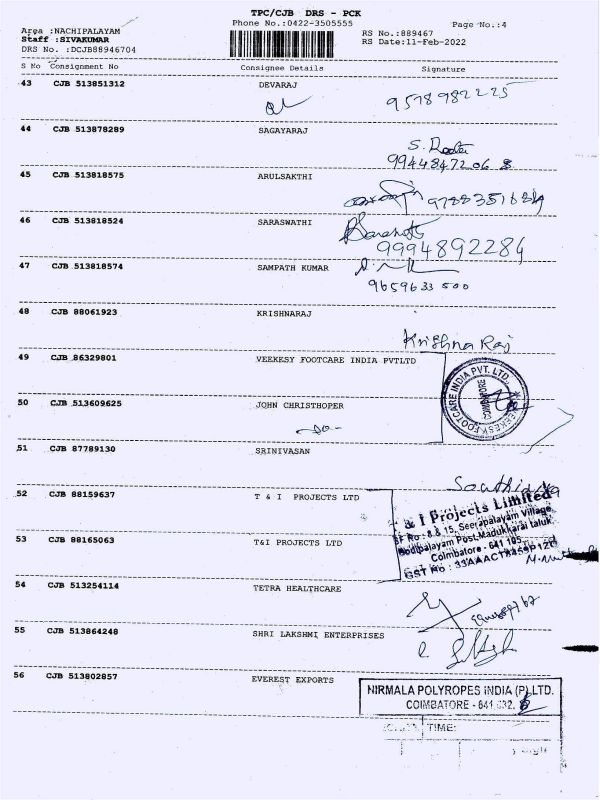 TPC/CJB DRS - PCK
Phone No.:0422-3505555
Page No.:4
Area :NACHIPALAYAM
Staff :SIVAKUMAR
DRS No. :DCJB88946704
RS No.:889467
RS Date:11-Feb-2022
S No Consignment No Consignee Details Signature
43 CJB 513851312 DEVARAJ
9578982225
44 CJB 513878289 SAGAYARAJ
45 CJB 513818575 ARULSAKTHI
46 CJB 513818524 SARASWATHI
9994892284
47 CJB 513818574 SAMPATH KUMAR
9659633500
48 CJB 88061923 KRISHNARAJ
Krishna Raj
49 CJB 86329801 VEEKESY FOOTCARE INDIA PVTLTD
VEEKESY FOOTCARE INDIA PVT. LTD.
50 CJB 513609625 JOHN CHRISTHOPER
51 CJB 87789130 SRINIVASAN
52 CJB 88159637 T & I PROJECTS LTD
& I Projects Limited
SF No : 8 & 15, Seerapalayam Village
Bodipalayam Post, Madukkarai taluk
Coimbatore - 641 105.
GST No :
53 CJB 88165063 T&I PROJECTS LTD
54 CJB 513254114 TETRA HEALTHCARE
55 CJB 513864248 SHRI LAKSHMI ENTERPRISES
56 CJB 513802857 EVEREST EXPORTS
NIRMALA POLYROPES INDIA (P) LTD.
COIMBATORE - 641 032.
TIME: